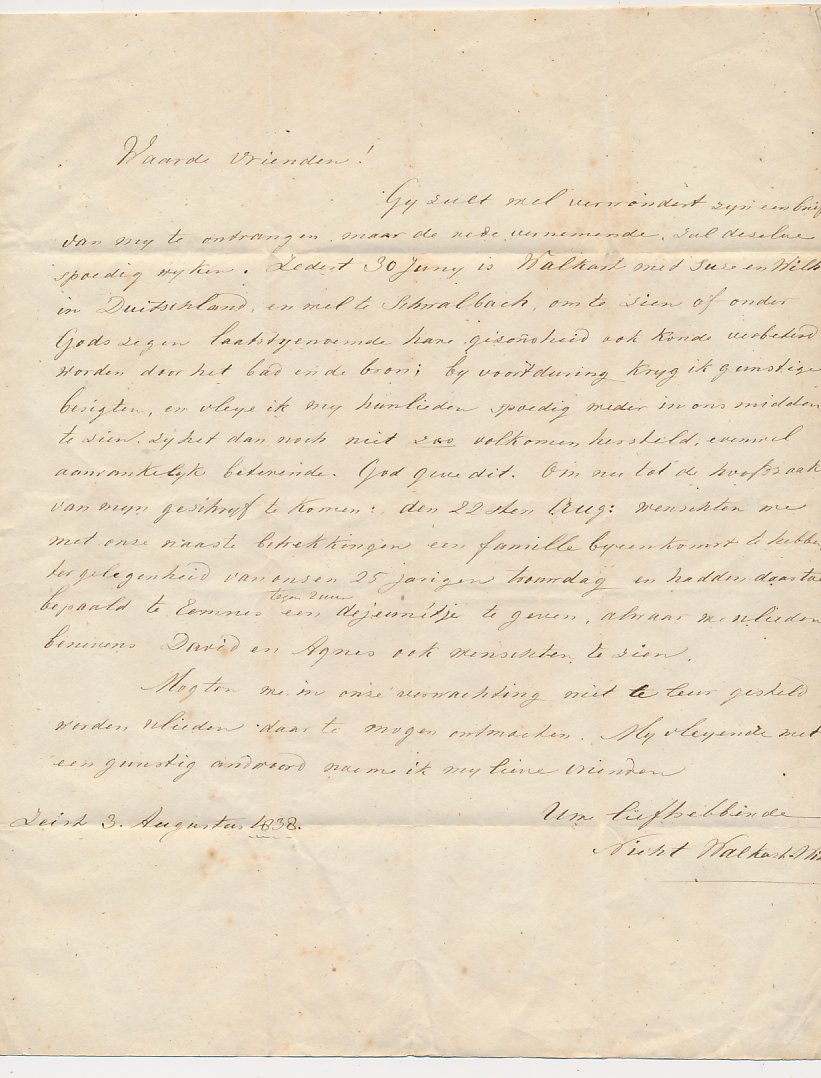 Waarde Vrienden!
Gy zult wel verwondert zyn een brief
van my te ontvangen, maar de rede vernemende, zal deselve
spoedig wyken. Zedert 30 Juny is Walkart met Suze en
in Duitschland, en wel te Schwalbach, om te zien of onder
Gods zegen laatstgenoemde hare gezondheid ook konde verbeterd
worden door het bad en de bron; by voortduring kryg ik gunstige
berigten, en vleye ik my hunlieden spoedig weder in ons midden
te zien, zy het dan noch niet zoo volkomen hersteld, evenwel
aanvankelyk beterende. God geve dit. Om nu tot de hoofdzaak
van myn geschryf te komen: den 22sten Aug: wenschten we
met onse naaste betrekkingen een famille byeenkomst te hebben
ter gelegenheid van onsen 25 jarigen trouwdag en hadden daartoe
tegen 2 uur
bepaald te Eemnes een dejeunétje te geven, alwaar we ulieden
benevens David en Agnes ook wenschten te zien.
Mogten we in onze verwachting niet te leur gesteld
worden ulieden daar te mogen ontmoeten. My vleyende met
een gunstig andwoord noeme ik my lieve vrienden
Zeist 3. Augustus 1838.
Uw liefhebbende
Nicht Walkart